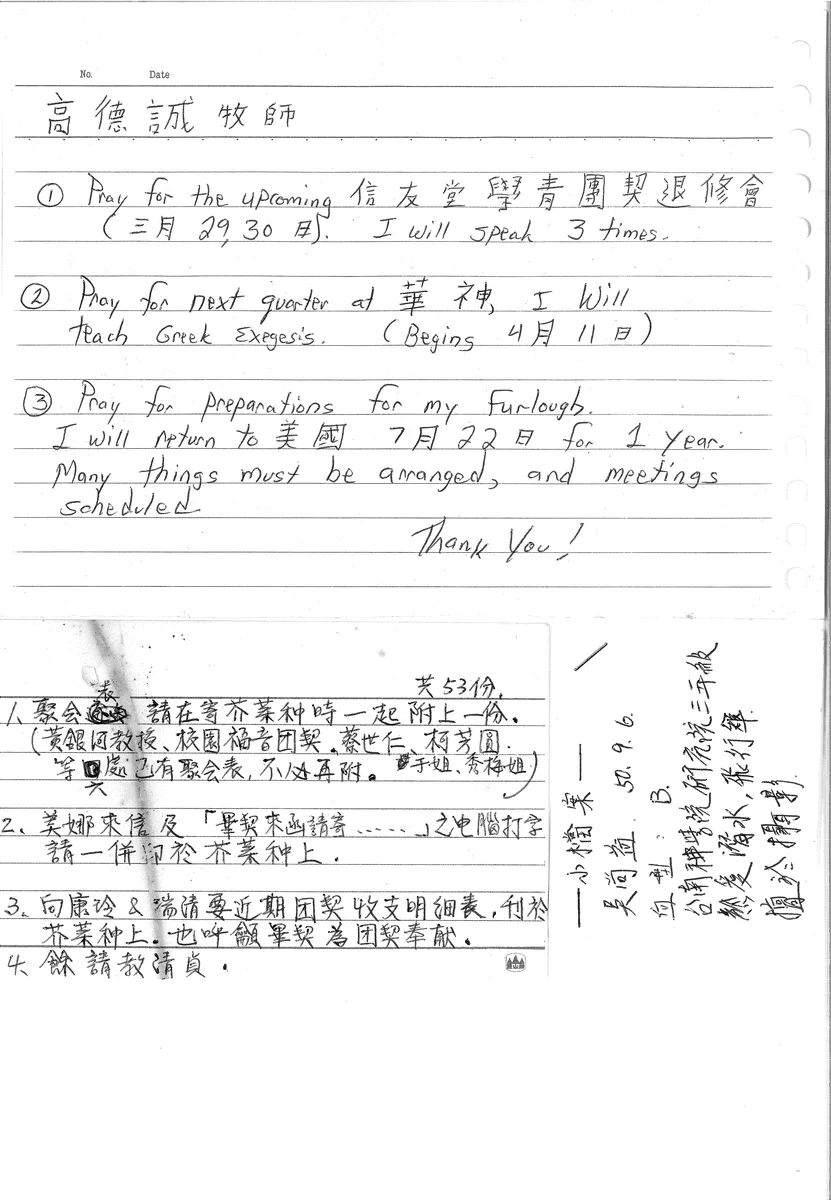 No. Date
高德誠牧師
① Pray for the upcoming 信友堂學青團契退修會
(三月 29, 30 日). I will speak 3 times.
② Pray for next quarter at 華神, I will
teach Greek Exegesis. (Begins 4月 11日)
③ Pray for preparations for my Furlough.
I will return to 美國 7月 22日 for 1 year.
Many things must be arranged, and meetings
scheduled
Thank You!
共53份.
1、聚会表 請在寄芥菜种時一起附上一份.
(黃銀河教授、校園福音团契、蔡世仁、柯芳圓.
等六處已有聚会表,不必再附。 于姐、秀梅姐)
2、美娜來信及「畢契來函請寄......」之电腦打字
請一併印於芥菜种上.
3、向康玲&瑞清要近期团契收支明細表,刊於
芥菜种上.也呼籲畢契為团契奉献.
4、餘請教清貞.
—小檔案—
吳尚益. 50.9.6.
血型:B.
台南
熱愛潛水,飛行傘.
擅於攝影